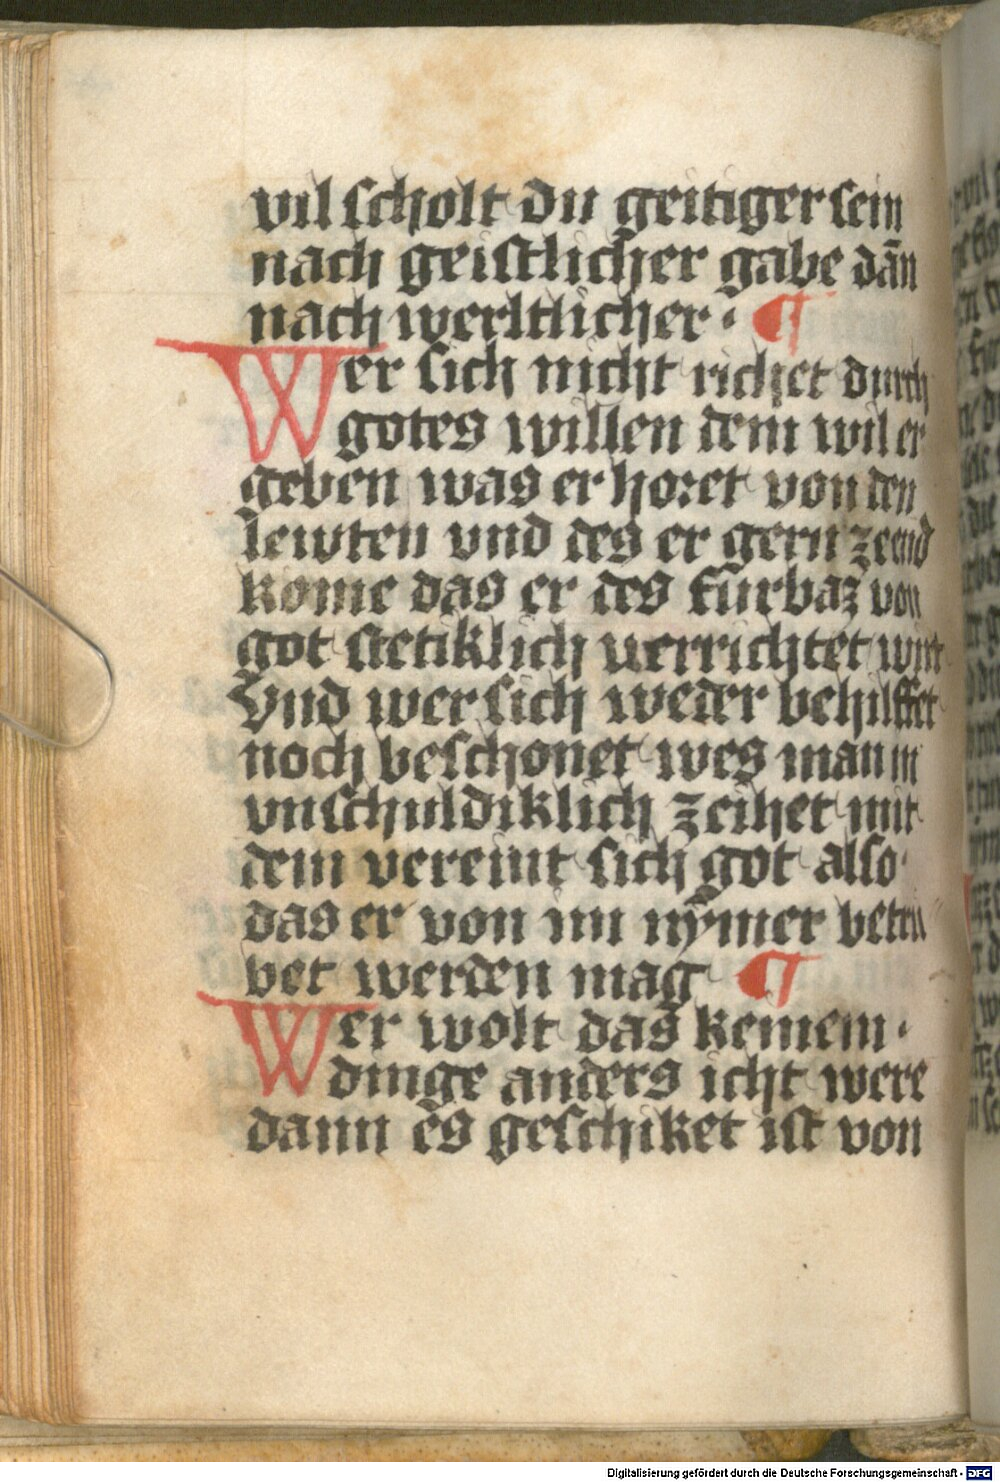 vil scholt du geitiger sein
nach geistlicher gabe dān
nach werltlicher · ¶
Wer sich nicht richet durch
gotes willen dem wil er
geben was er horet von den
lewten vnd des er gern ze end
kome das er des furbaz von
got stetiklich verrichtet wirt
Vnd wer sich weder behilffet
noch beschonet wes man in
vnschuldiklich zeihet mit
dem vereint sich got also·
das er von im nymer betru
bet werden mag ¶
Wer wolt das keinem ·
dinge anders icht were
dann es geschiket ist von
Digitalisierung gefördert durch die Deutsche Forschungsgemeinschaft - DFG